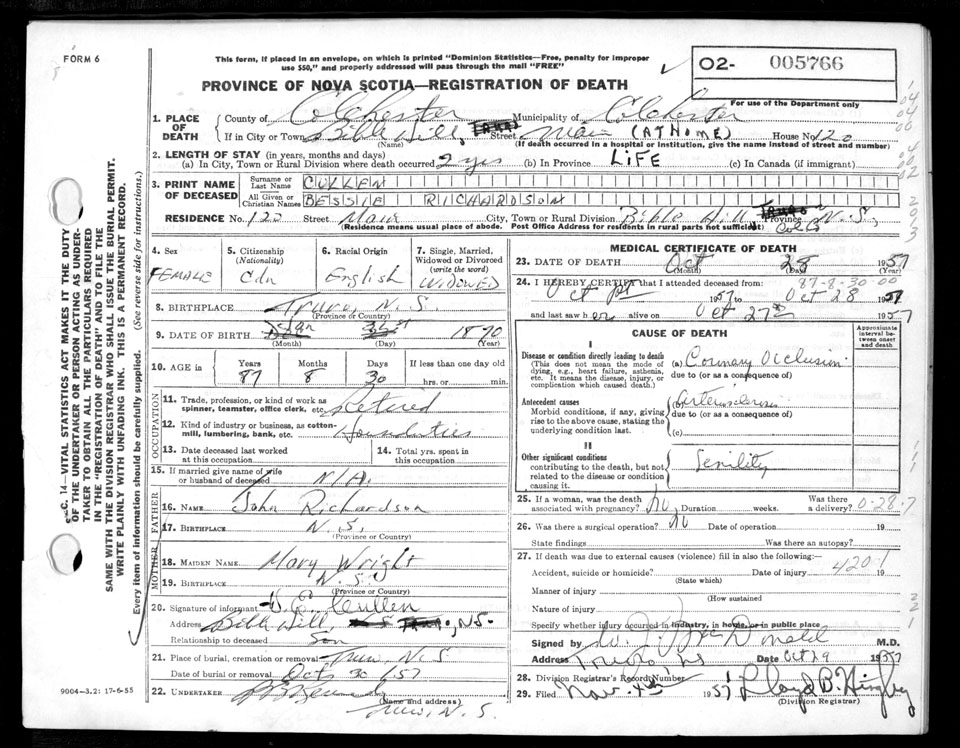 FORM 6
This form, if placed in an envelope, on which is printed "Dominion Statistics—Free, penalty for improper
use $50," and properly addressed will pass through the mail "FREE"
O2- 005766
PROVINCE OF NOVA SCOTIA—REGISTRATION OF DEATH
For use of the Department only
1. PLACE OF DEATH
County of Colchester Municipality of Colchester
If in City or Town Bible Hill, Truro Street Main (AT HOME) House No. 120
(Name) (If death occurred in a hospital or institution, give the name instead of street and number)
2. LENGTH OF STAY (in years, months and days)
(a) In City, Town or Rural Division where death occurred 2 yrs (b) In Province LIFE (c) In Canada (if immigrant)
3. PRINT NAME OF DECEASED
Surname or Last Name CULLEN
All Given or Christian Names BESSIE RICHARDSON
RESIDENCE No. 120 Street Main City, Town or Rural Division Bible Hill Truro Province N.S,
(Residence means usual place of abode. Post Office Address for residents in rural parts not sufficient) Col Co
4. Sex
FEMALE
5. Citizenship
(Nationality)
Cdn
6. Racial Origin
English
7. Single, Married, Widowed or Divorced
(write the word)
WIDOWED
8. BIRTHPLACE Truro N.S.
(Province or Country)
9. DATE OF BIRTH Jan 31st 1870
(Month) (Day) (Year)
10. AGE in
Years Months Days If less than one day old
87 8 30 hrs. or min.
OCCUPATION
11. Trade, profession, or kind of work as
spinner, teamster, office clerk, etc. Retired
12. Kind of industry or business, as cotton-
mill, lumbering, bank, etc.
13. Date deceased last worked
at this occupation
14. Total yrs. spent in
this occupation
15. If married give name of wife
or husband of deceased N/A.
FATHER
16. NAME John Richardson
17. BIRTHPLACE N.S.
(Province or Country)
MOTHER
18. MAIDEN NAME Mary Wright
19. BIRTHPLACE N.S.
(Province or Country)
20. Signature of informant Cullen
Address Bible Hill, N.S.
Relationship to deceased Son
21. Place of burial, cremation or removal Truro, N.S
Date of burial or removal Oct 30 1957
22. UNDERTAKER
(Name and address)
Truro, N.S.
MEDICAL CERTIFICATE OF DEATH
23. DATE OF DEATH Oct 28 1957
(Month) (Day) (Year)
87-8-30-00
24. I HEREBY CERTIFY that I attended deceased from:
Oct 1957 to Oct 28 1957
and last saw her alive on Oct 27 1957
CAUSE OF DEATH
Approximate interval between onset and death
I
Disease or condition directly leading to death
(This does not mean the mode of
dying, e.g., heart failure, asthenia,
etc. It means the disease, injury, or
complication which caused death.)
(a) Coronary Occlusion
due to (or as a consequence of)
Antecedent causes
Morbid conditions, if any, giving
rise to the above cause, stating the
underlying condition last.
(b) Arteriosclerosis
due to (or as a consequence of)
(c)
II
Other significant conditions
contributing to the death, but not
related to the disease or condition
causing it.
Senility
25. If a woman, was the death
associated with pregnancy? No Duration weeks. Was there a delivery? 0-28-7
26. Was there a surgical operation? No Date of operation 19
State findings Was there an autopsy?
27. If death was due to external causes (violence) fill in also the following:
Accident, suicide or homicide? Date of injury 19 420-1
(State which)
Manner of injury
(How sustained)
Nature of injury
Specify whether injury occurred in industry, in home, or in public place
Signed by MacDonald M.D.
Address Truro NS Date Oct 29 1957
28. Division Registrar's Record Number
29. Filed Nov. 4th 1957 Lloyd B. Hingley
(Division Registrar)
9004-3.2: 17-6-55
SEC. 14—VITAL STATISTICS ACT MAKES IT THE DUTY
OF THE UNDERTAKER OR PERSON ACTING AS UNDER-
TAKER TO OBTAIN ALL THE PARTICULARS REQUIRED
IN THE "REGISTRATION OF DEATH" AND TO FILE THE
SAME WITH THE DIVISION REGISTRAR WHO SHALL ISSUE THE BURIAL PERMIT.
WRITE PLAINLY WITH UNFADING INK. THIS IS A PERMANENT RECORD.
Every item of information should be carefully supplied. (See reverse side for instructions.)